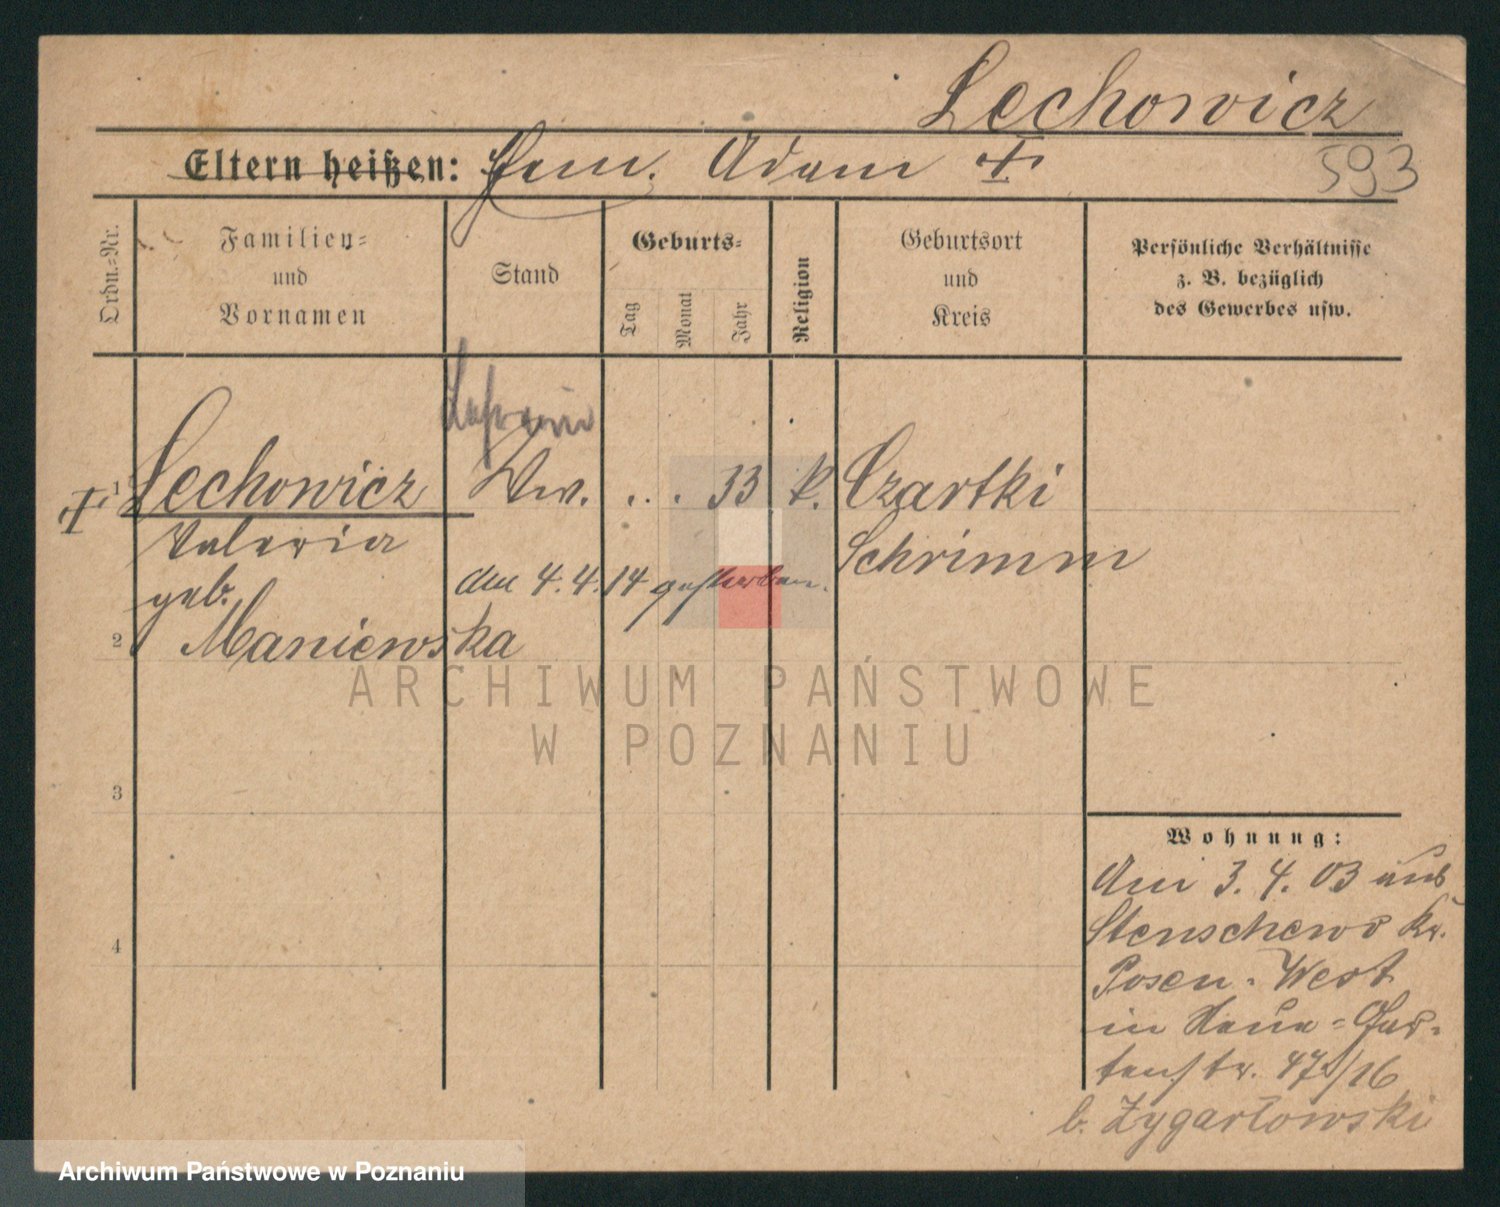 Lechowicz
593
Eltern heißen: Adam †
Ordn.-Nr.
Familien-
und
Vornamen
Stand
Geburts-
Tag
Monat
Jahr
Religion
Geburtsort
und
Kreis
Persönliche Verhältnisse
z. B. bezüglich
des Gewerbes usw.
† 1 Lechowicz Ww. . . . 33 k. Czartki
Valeria Schrimm
geb. den 4.4.14 gestorben.
2 Maniewska
3
4
Wohnung:
Am 3. 4. 03 aus
Stenschewo Kr.
Posen-West
in Neue-Gar-
tenstr. 47/16
b. Zygarłowski
ARCHIWUM PAŃSTWOWE
W POZNANIU
Archiwum Państwowe w Poznaniu